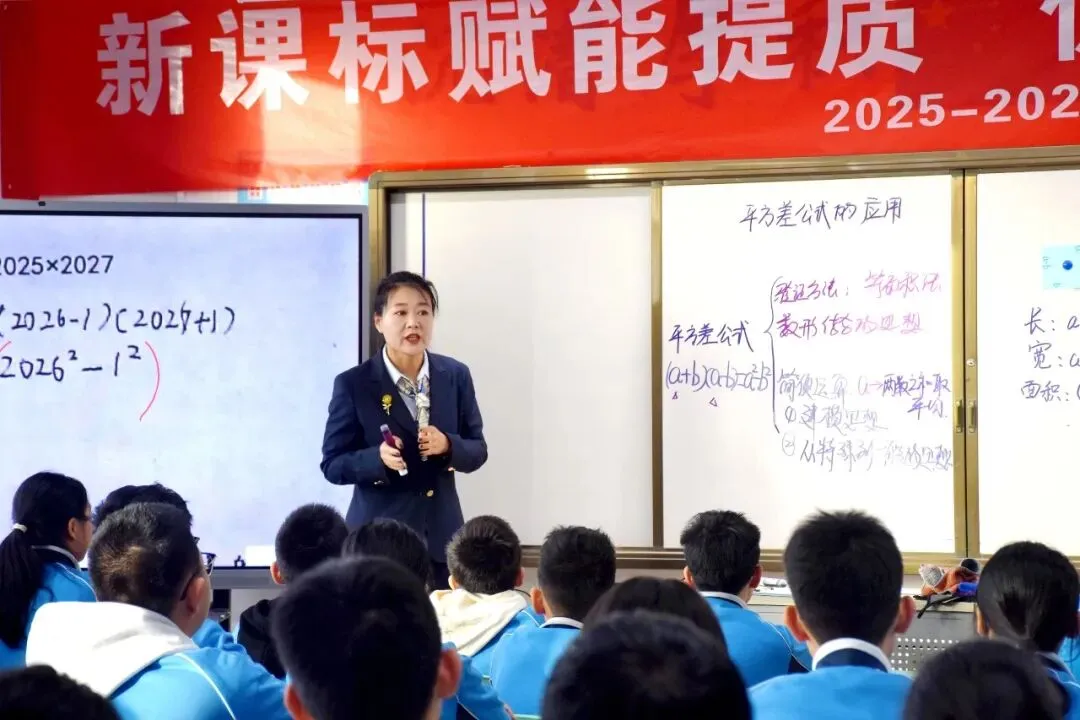 新课标赋能提质
2025-202
2025×2027
(2026-1)(2027+1)
2026²-1²
平方差公式的应用
平方差公式
(a+b)(a-b)=a²-b²
验证方法：等面积法
数形结合的思想
简便运算 a→两数之和取
平均
①建模思想
②从特殊到一般的思想
长：a
宽：a
面积：